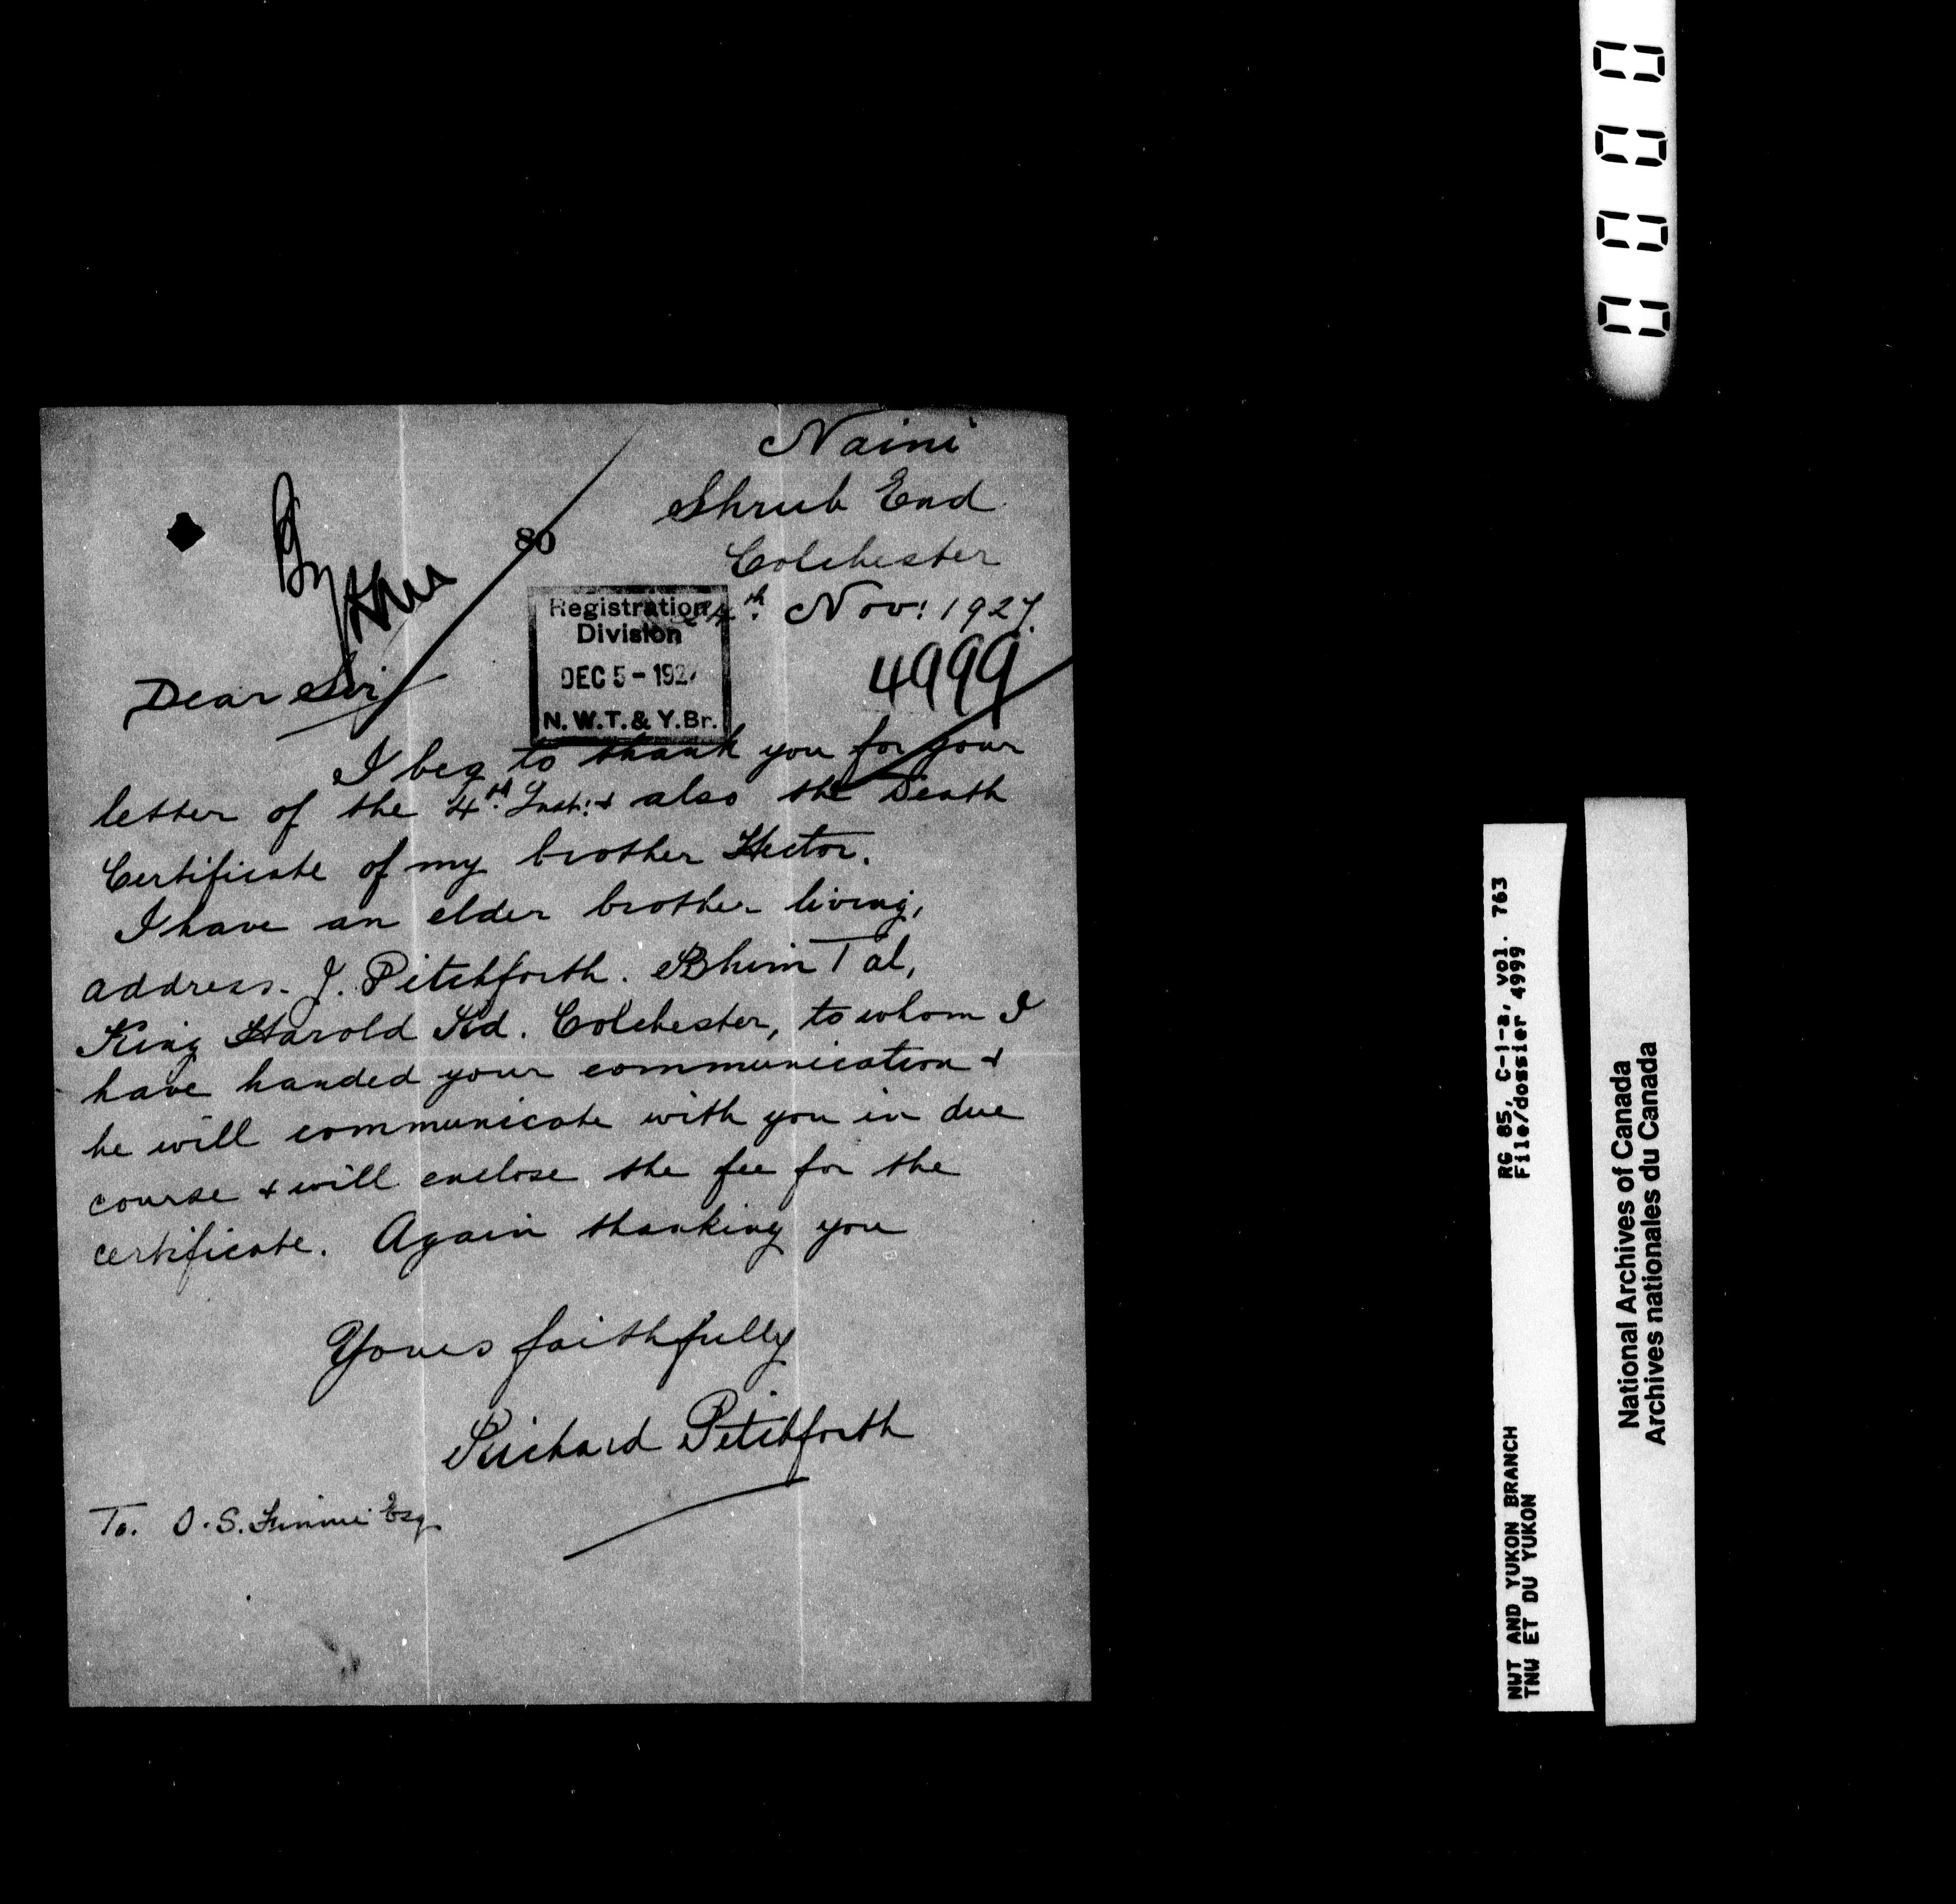 Naini
Shrub End
Colchester
24th. Nov: 1927.
80
Registration
Division
DEC 5 - 1927
N. W. T. & Y. Br.
4999
Dear Sir
I beg to thank you for your
letter of the 4th. Inst: & also the Death
Certificate of my brother Hector.
I have an elder brother living,
address. J. Pitchforth. Bhim Tal,
King Harold Rd. Colchester, to whom I
have handed your communication &
he will communicate with you in due
course & will enclose the fee for the
certificate. Again thanking you
Yours faithfully
Richard Pitchforth
To. O. S. Finnie Esq
0000
RG 85, C-1-a, vol. 763
File/dossier 4999
NWT AND YUKON BRANCH
TNW ET DU YUKON
National Archives of Canada
Archives nationales du Canada